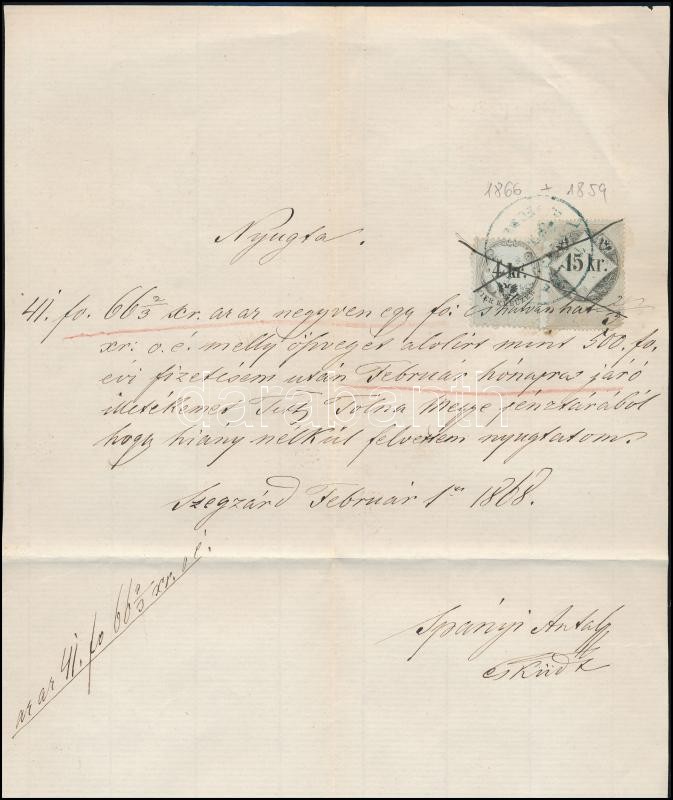 1866 + 1859
Nyugta.
4 kr.
15 kr.
41. fo. 66 2/3 xr. azaz negyvenegy fo. és hatvanhat 2/3
xr. o. é. melly öszveget alolirt mint 500. fo.
évi fizetésem után Február hónapra járó
illetékenet Tettes Tolna Megye pénztárából
hogy hiany nélkül felvettem nyugtatom.
Szegzárd Február 1ér 1868.
Spányi Antal
esküdt
azaz 41. fo 66 2/3 xr. o é.
darabanth